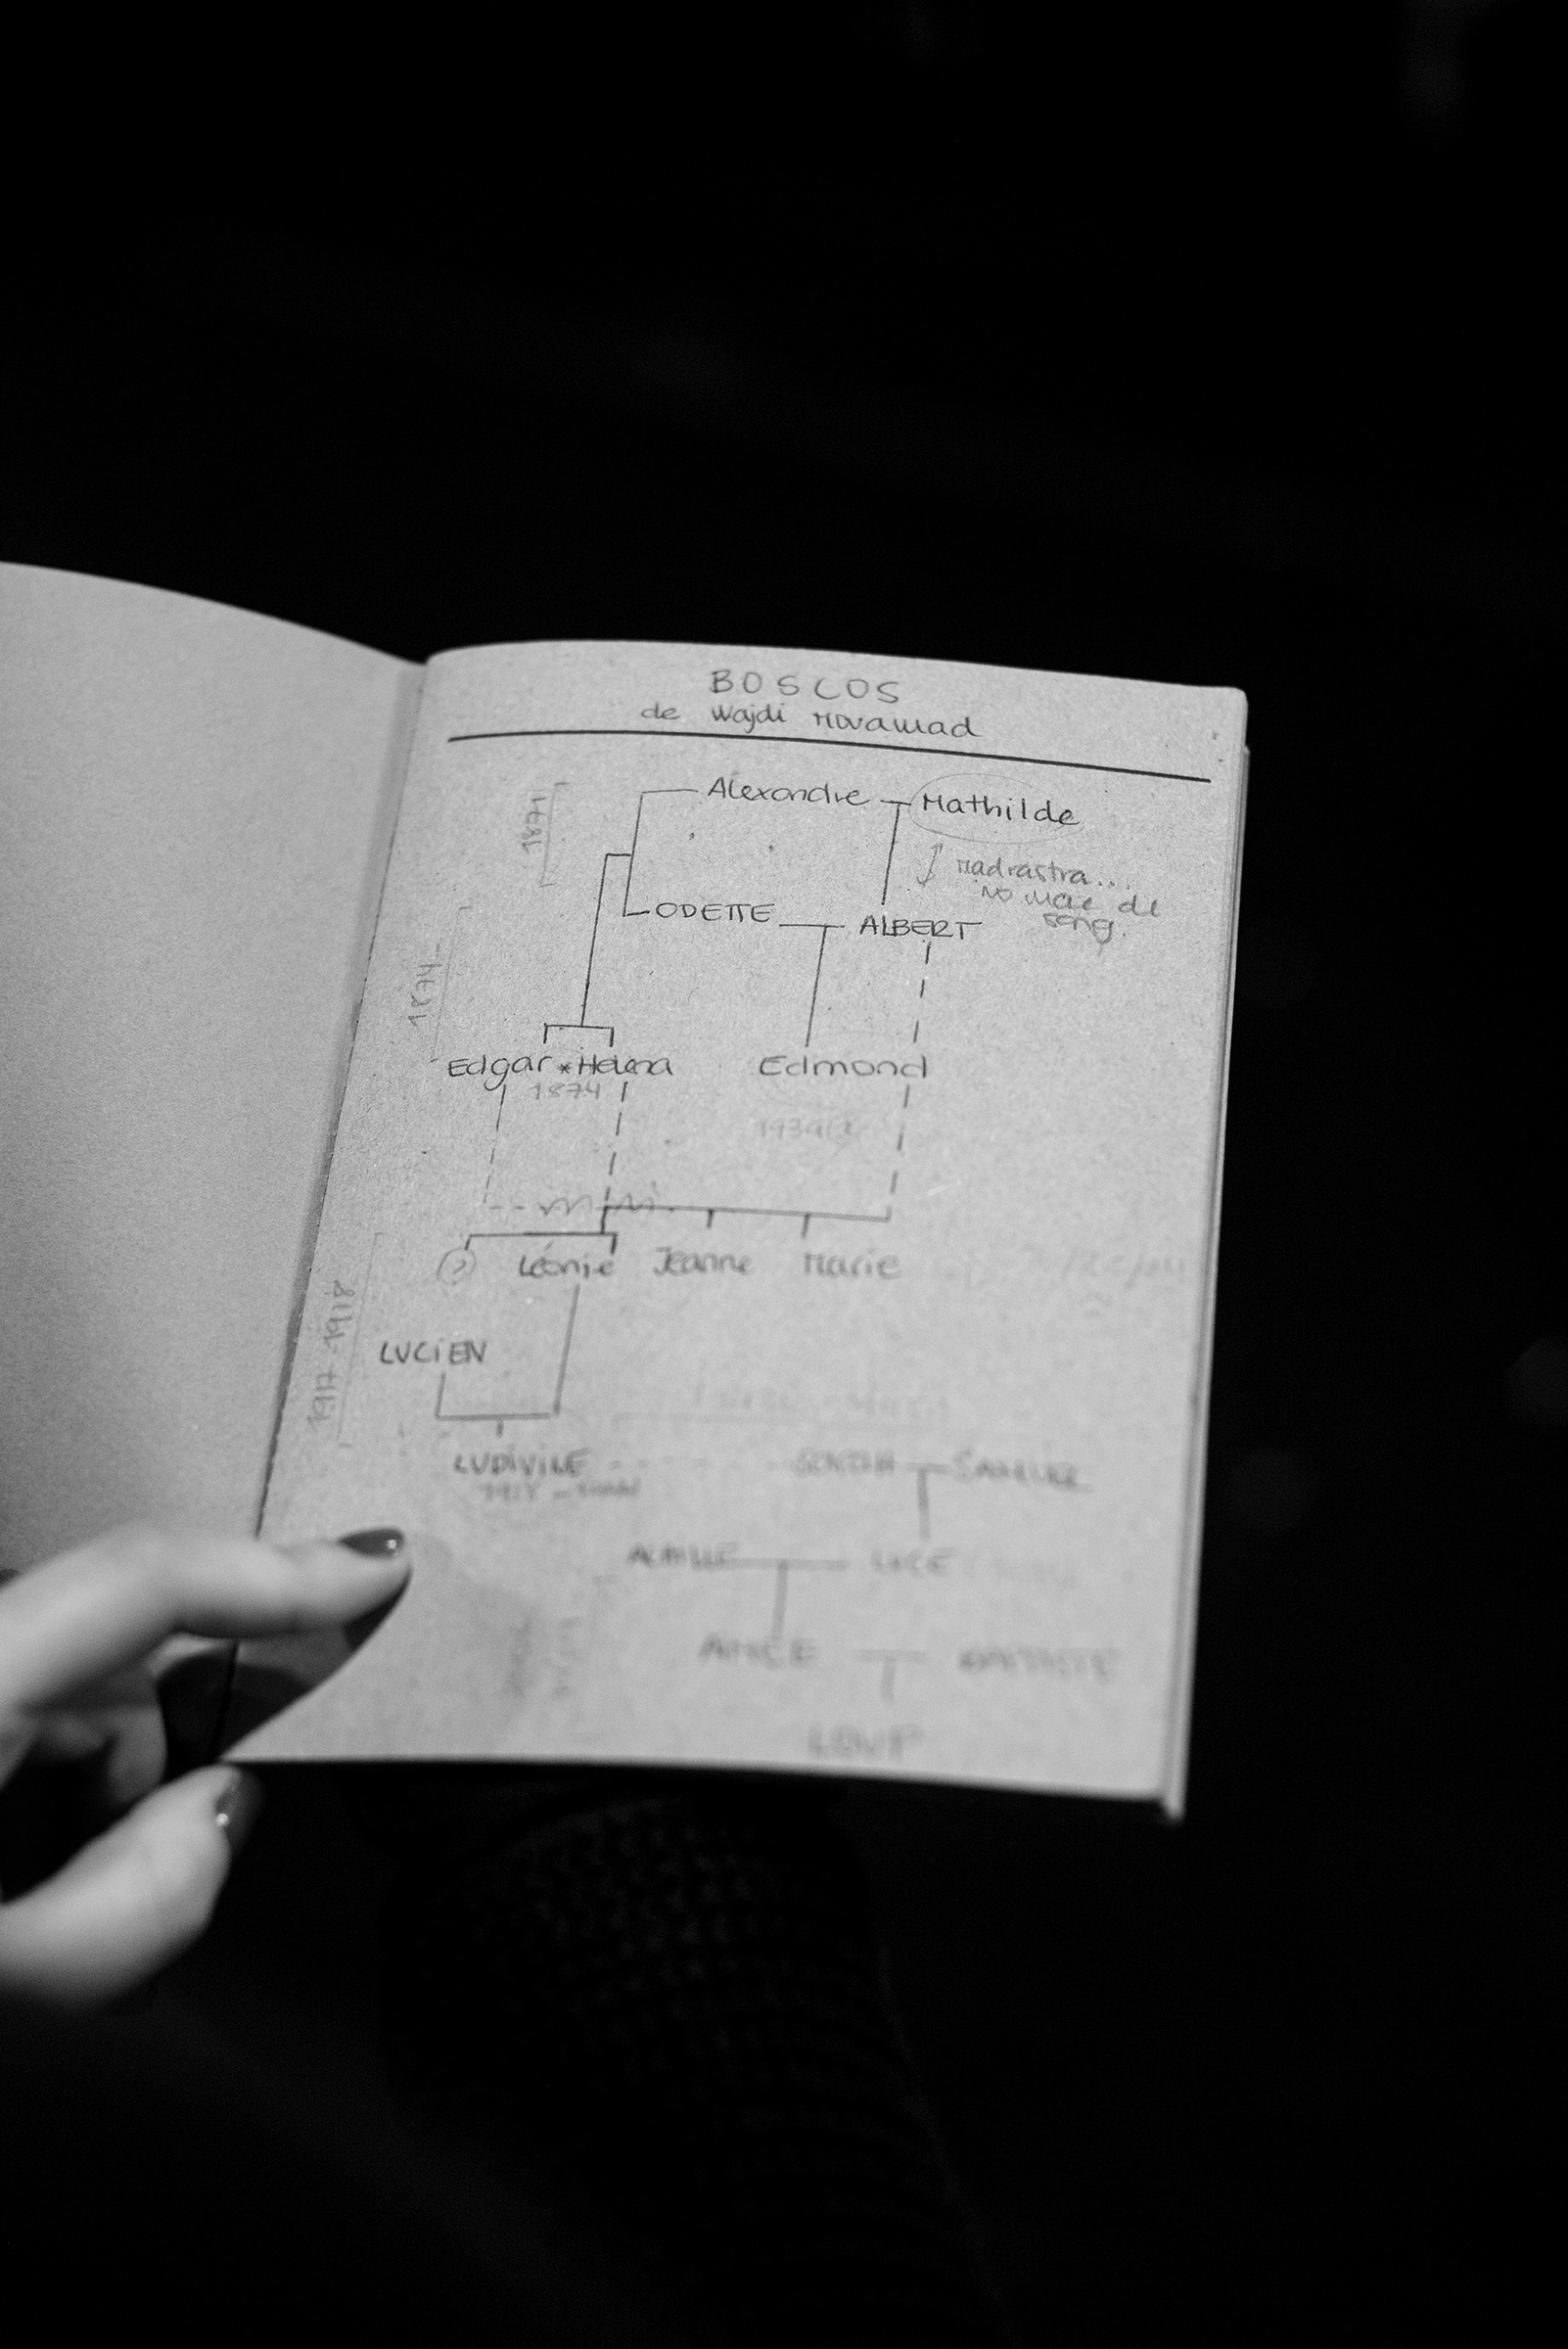 BOSCOS
de Wajdi Mouawad
1871
Alexandre Mathilde
Madrastra...
no mare de
sang.
ODETTE ALBERT
1874-
Edgar * Helena Edmond
1874
? Léonie Jeanne Marie
1917-1918
LUCIEN
LUDIVINE
ACHILLE LUCE
AIMÉE
LOUP